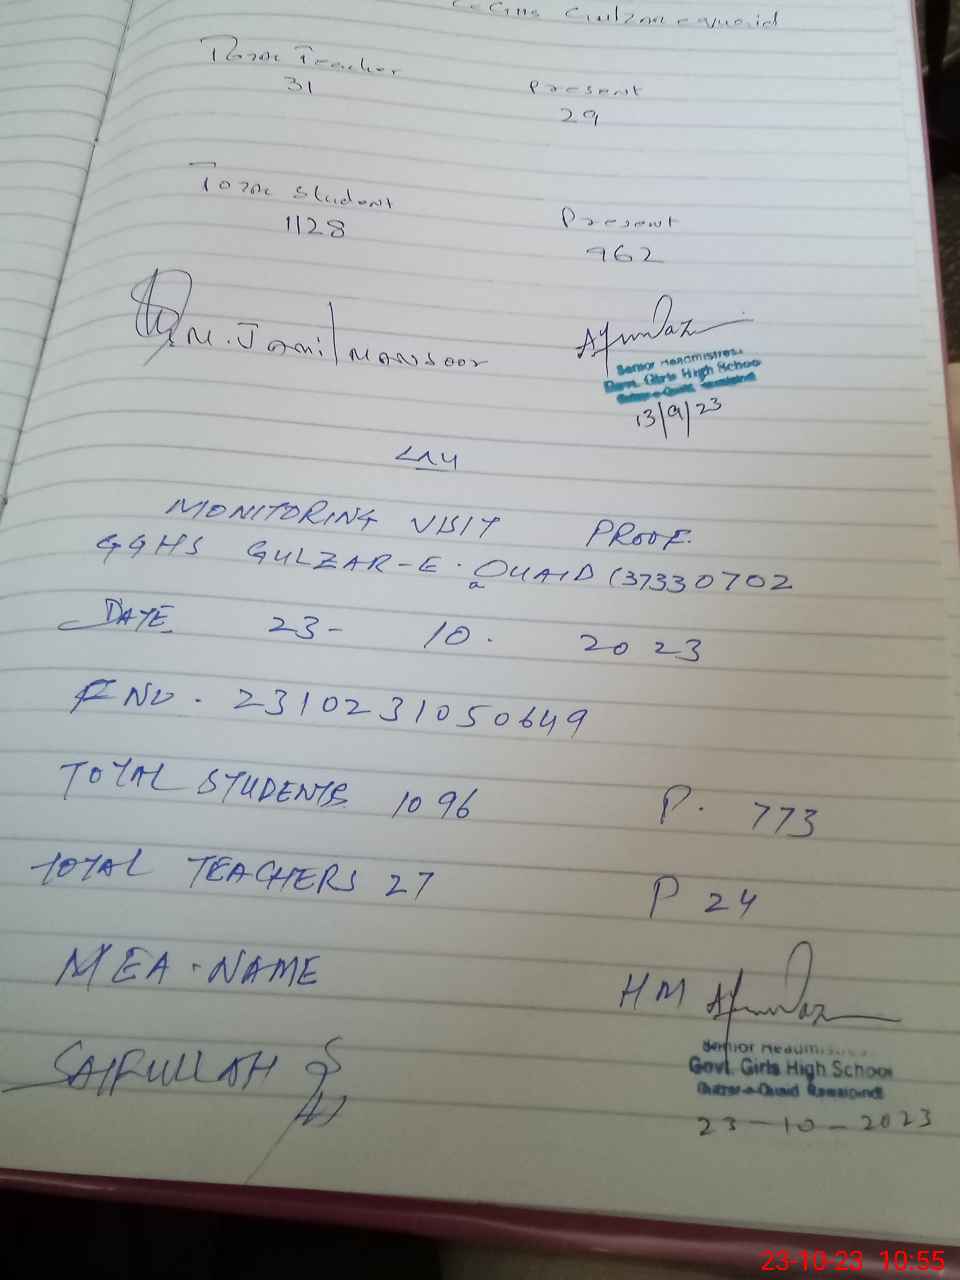 Gulzar e quaid
Total Teacher Present
31 29
Total Student Present
1128 962
M. Jamil MANSOOR
Senior Headmistress
Govt. Girls High School
13/9/23
MONITORING VISIT PROOF
GGHS GULZAR-E-QUAID (37330702
DATE 23- 10. 2023
F NO. 2310231050649
TOTAL STUDENTS 1096 P. 773
TOTAL TEACHERS 27 P 24
MEA - NAME HM
SAIFULLAH
Senior Headmistress
Govt. Girls High School
Gulzar-e-Quaid Rawalpindi
23-10-2023
23-10-23 10:55